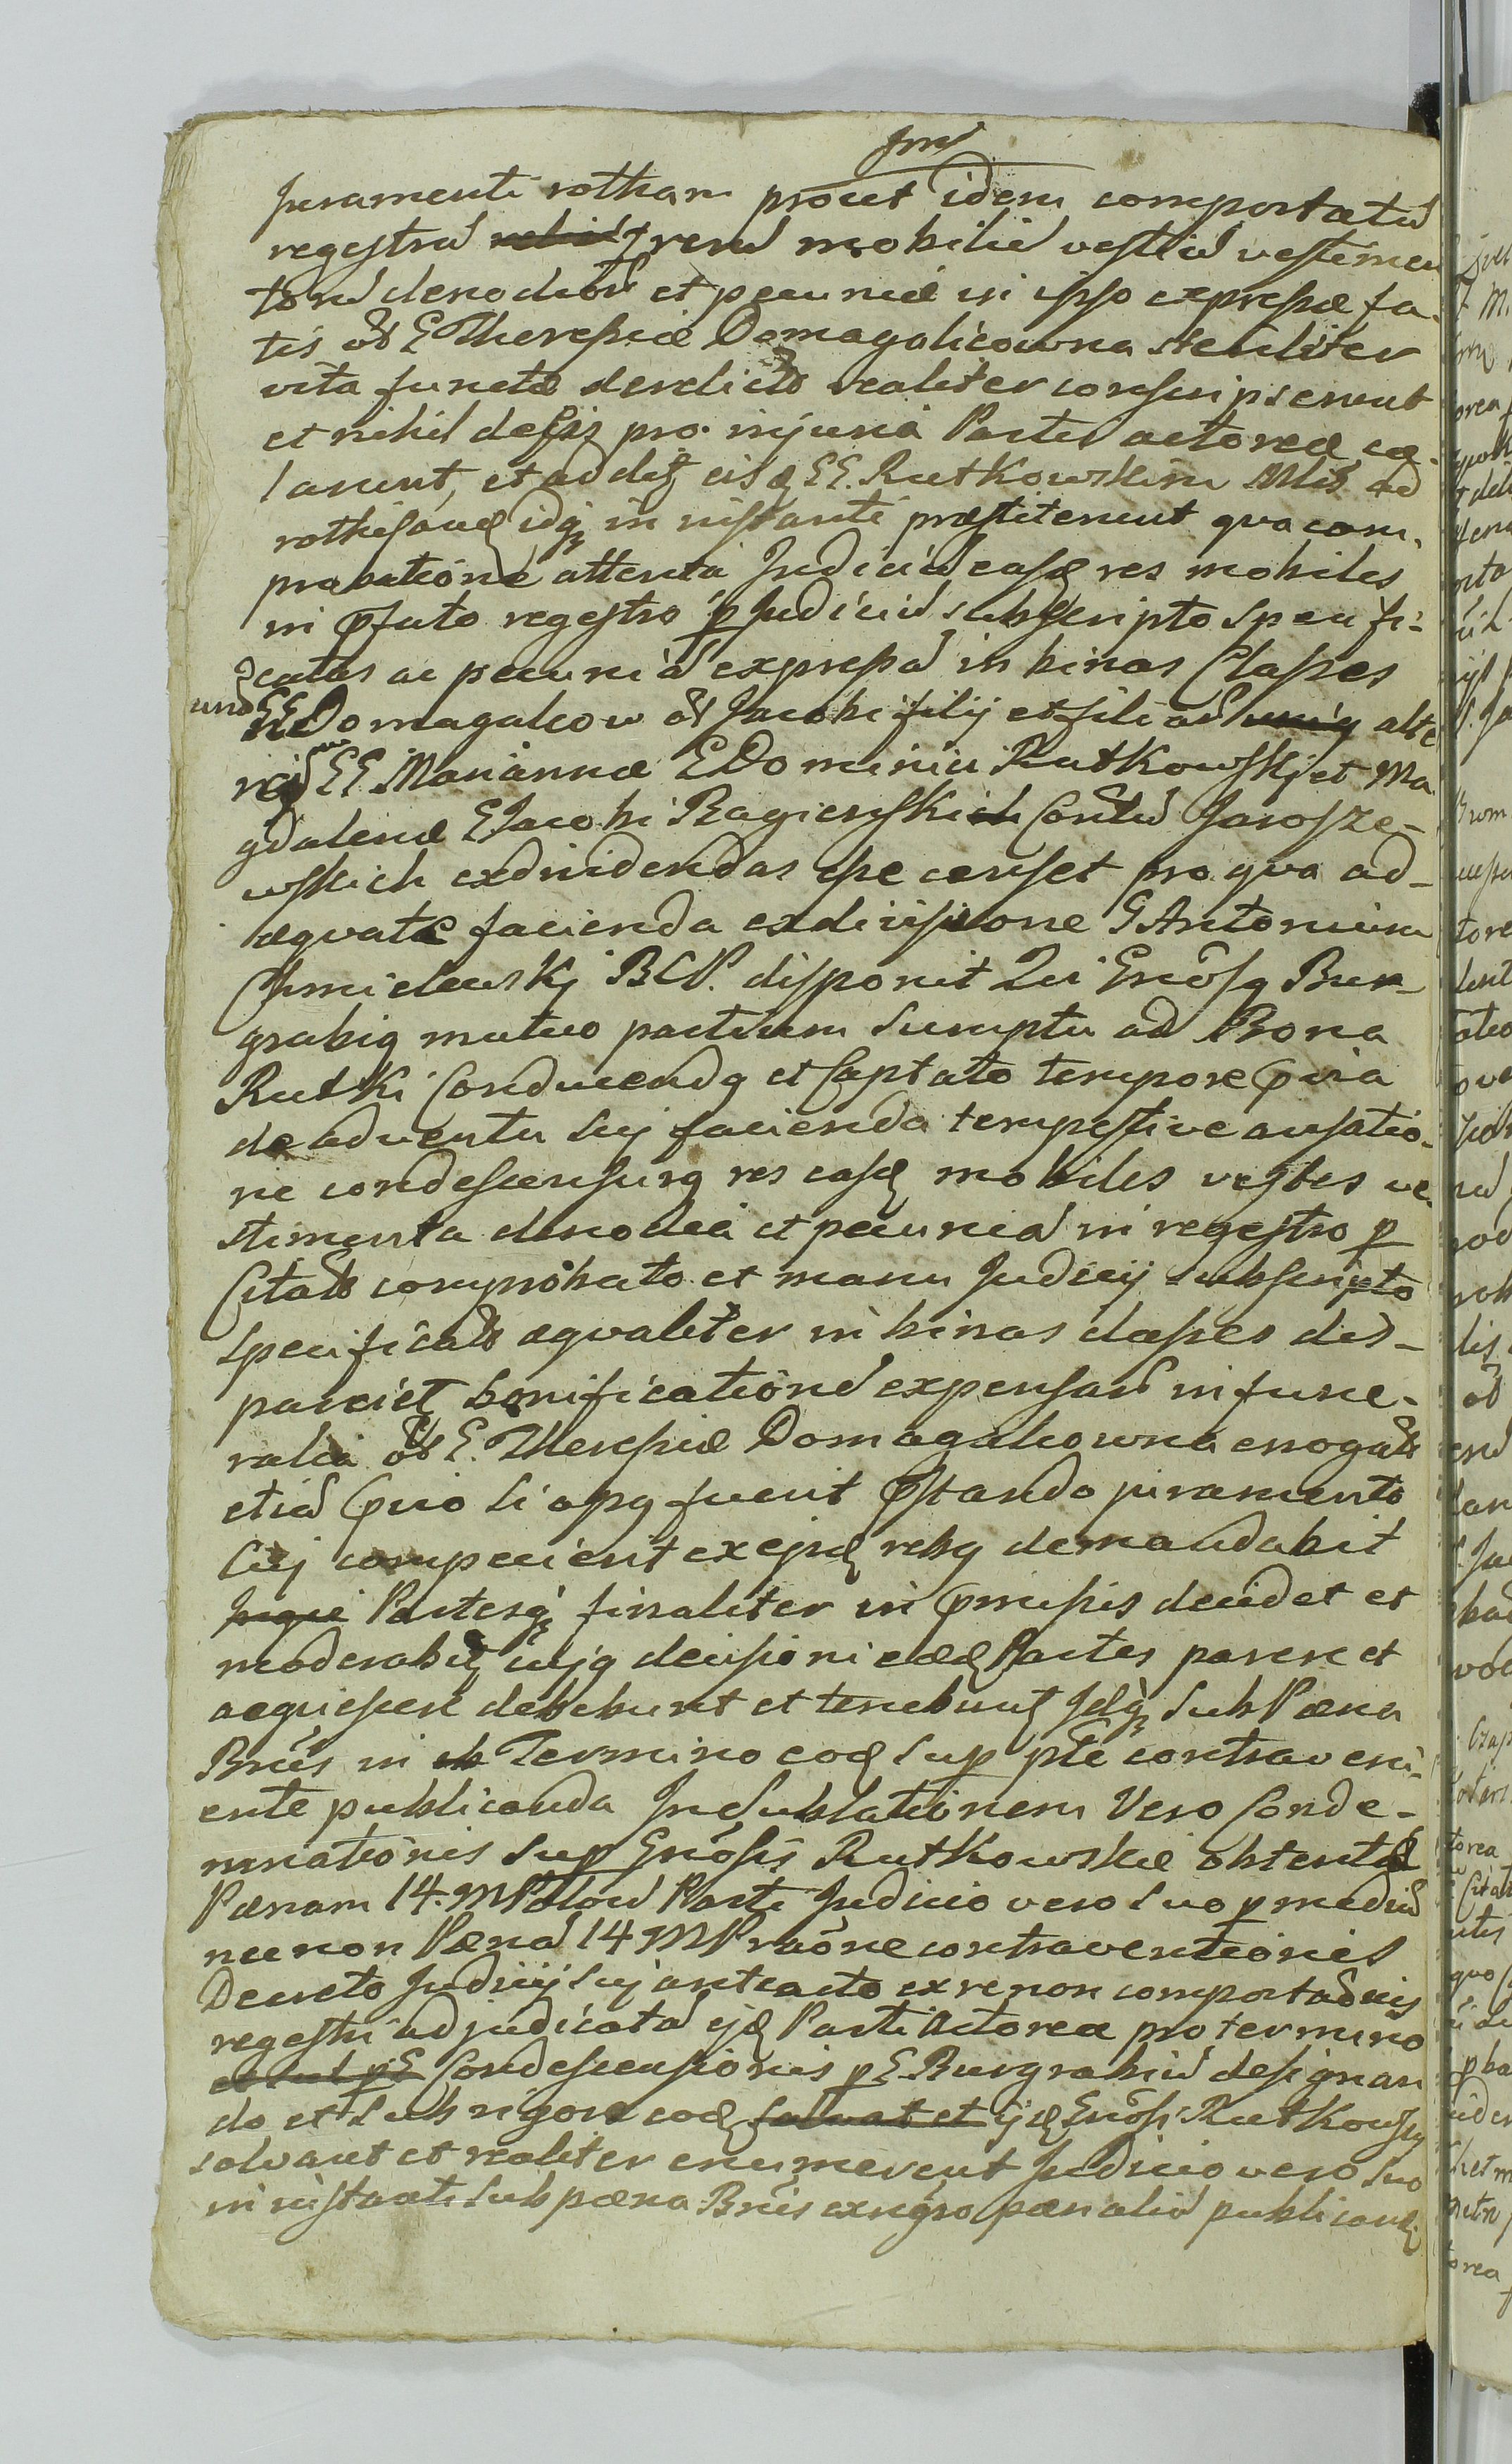 juramenti rotham prout idem comportatū
regestrū rerū mobiliū vestiū vestimen
torū clenodiorū et pecuniæ in ipso expressæ fa-
tis olim G Theressiæ Domagalicowna steriliter
vita functæ derelict realiter conscripserunt
et nihil de pro injuria Partis actoreæ cæ-
larunt, et ad eisd GG. Rutkowskim Mtis ad
rothisand idq in instanti præstiterunt qva com-
probatione attenta Judiciū easd res mobiles
in pfato regestro p Judiciū subscripto specifi-
catas ac pecuniā expressā in binas Classes
unā GG Domagalcow olim Jacobi filij et filiarū alte
rā GG Mariannæ G Dominici Rutkowskj et Ma
gdalenæ G Jacobi Bagieński Conjū Jarosze-
wskich exdividendas esse censet pro qva ad-
æqvate facienda exdivisione G Antonium
Chmielewskj BCP. disponit Qui Gnosg Bur-
grabig mutuo partium sumptu ad Bona
Rutki Conducendg et Captato tempore pvia
de adventu suj facienda tempestive avisatio-
ne condescensurg res easd mobiles vestes ve-
stimenta clenodia et pecuniā in regestro p
Citato comprobato et manu Judicij subscripto
specificat æqvaliter in binas classes dis-
parciet bonificationē expensarū in fune-
ralia olim G. Theressiæ Domagalcowna erogat
etiā pvio si opg fuerit pstando juramento
Cuj competierit ex ejusd rebg demandabit
Partesq finaliter in pmissis decidet et
moderabit cujg decisioni eæd Partes parere et
acqviescere debebunt et tenebunt Idq sub Pæna
Bnis in Termino eod sup pte contraveni-
ente publicanda In Sublationem Vero Conde-
mnationis sup Gnosis Rutkowskie obtentæ
Pænam 14. M Polon Parti Judicio vero suo p mediū
necnon Pænā 14 M P raone contraventionis
Decreto Judicij suj anteacto ex re non comportaonis
regestri adjudicatā ijd Parti Actoreæ pro termino
Condescensionis p G. Burgrabiū designan
do et sub rigore eod ijd Gnosi Rutkowscy
solvant et realiter enumerent Judicio vero suo
in instanti sub pæna Bnis ex nigro pænaliū publicand